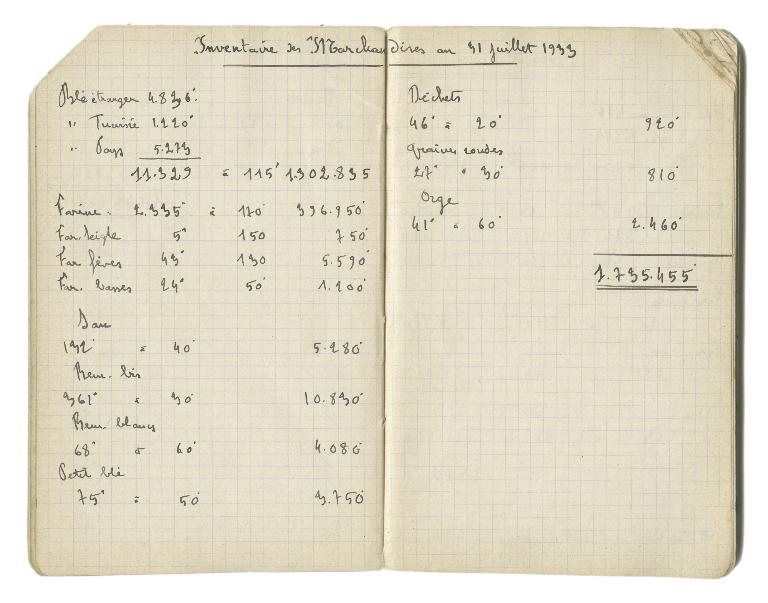 Inventaire des Marchandises au 31 juillet 1933
Blé étranger 4.836
" Tunisie 1.220
" Pays 5.273
11.329 à 115 1.302.835
Farine. 2.335 à 170 396.950
Far. seigle 5 150 750
Far fèves 43 130 5.590
Far. basses 24 50 1.200
Son
132 à 40 5.280
Rem. bis
361 à 30 10.830
Rem. blancs
68 à 60 4.080
Petit blé
75 à 50 3.750
Déchets
46 à 20 920
Graines rondes
27 à 30 810
Orge
41 à 60 2.460
1.735.455